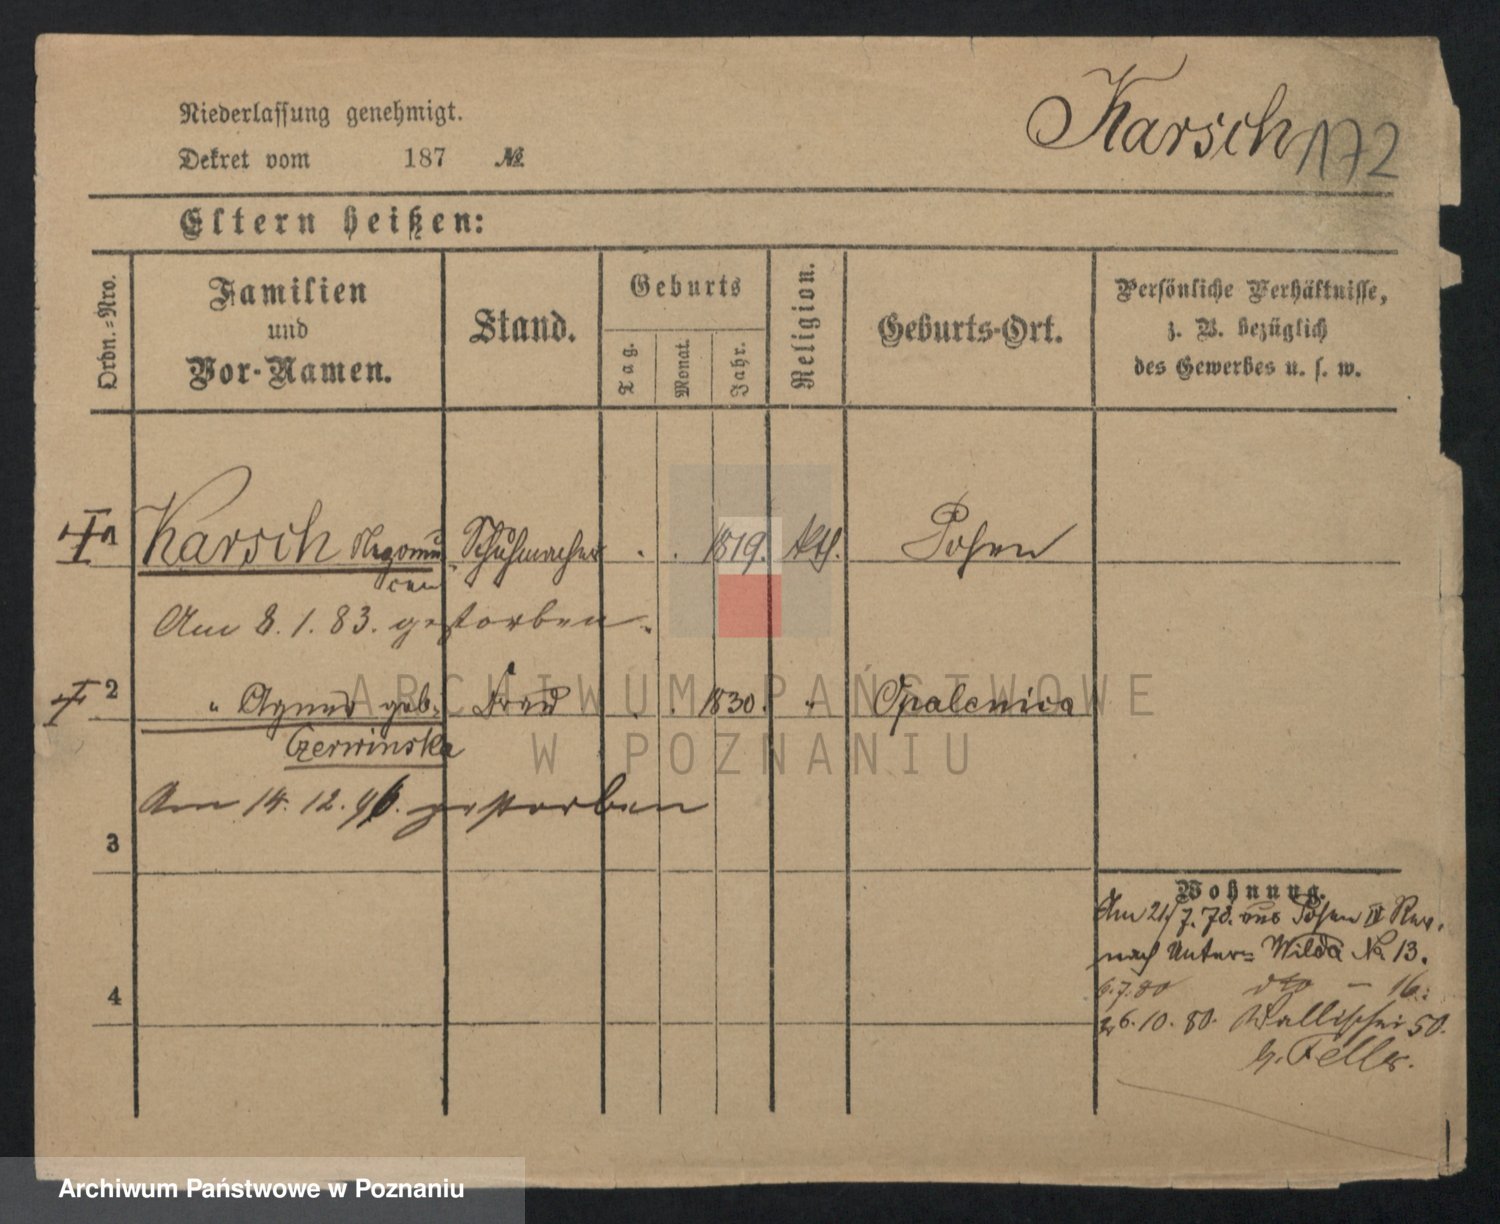 Niederlassung genehmigt.
Karsch 172
Dekret vom 187 №
Eltern heißen:
Ordn.-Nro.
Familien und Vor-Namen.
Stand.
Geburts
Tag.
Monat.
Jahr.
Religion.
Geburts-Ort.
Persönliche Verhältnisse, z. B. bezüglich des Gewerbes u. s. w.
1 Karsch Schuhmacher . . 1819. kth. Posen
Am 8.1.83. gestorben.
2 " Agnes geb. Frau . . 1830. " Opalenica
Czerwinska
Am 14.12.96. gestorben
3
Wohnung.
Am 21/7.78. aus Posen IV Rev.
nach Unter= Wilda № 13.
6.7.80 dto — 16.
26.10.80. Wallischei 50.
b. Feller.
4
ARCHIWUM PAŃSTWOWE
W POZNANIU
Archiwum Państwowe w Poznaniu